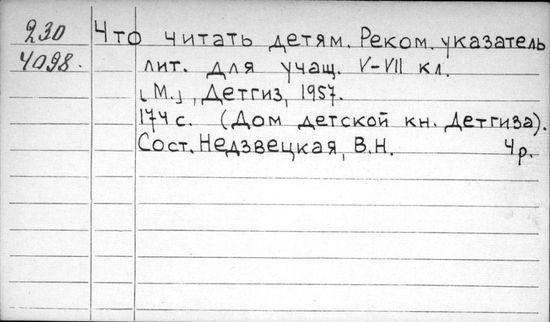 230
4098.
Что читать детям. Реком. указатель
лит. для учащ. V-VII кл.
[М.], Детгиз, 1957.
174 с. (Дом детской кн. Детгиза).
Сост. Недзвецкая, В.Н. 4р.